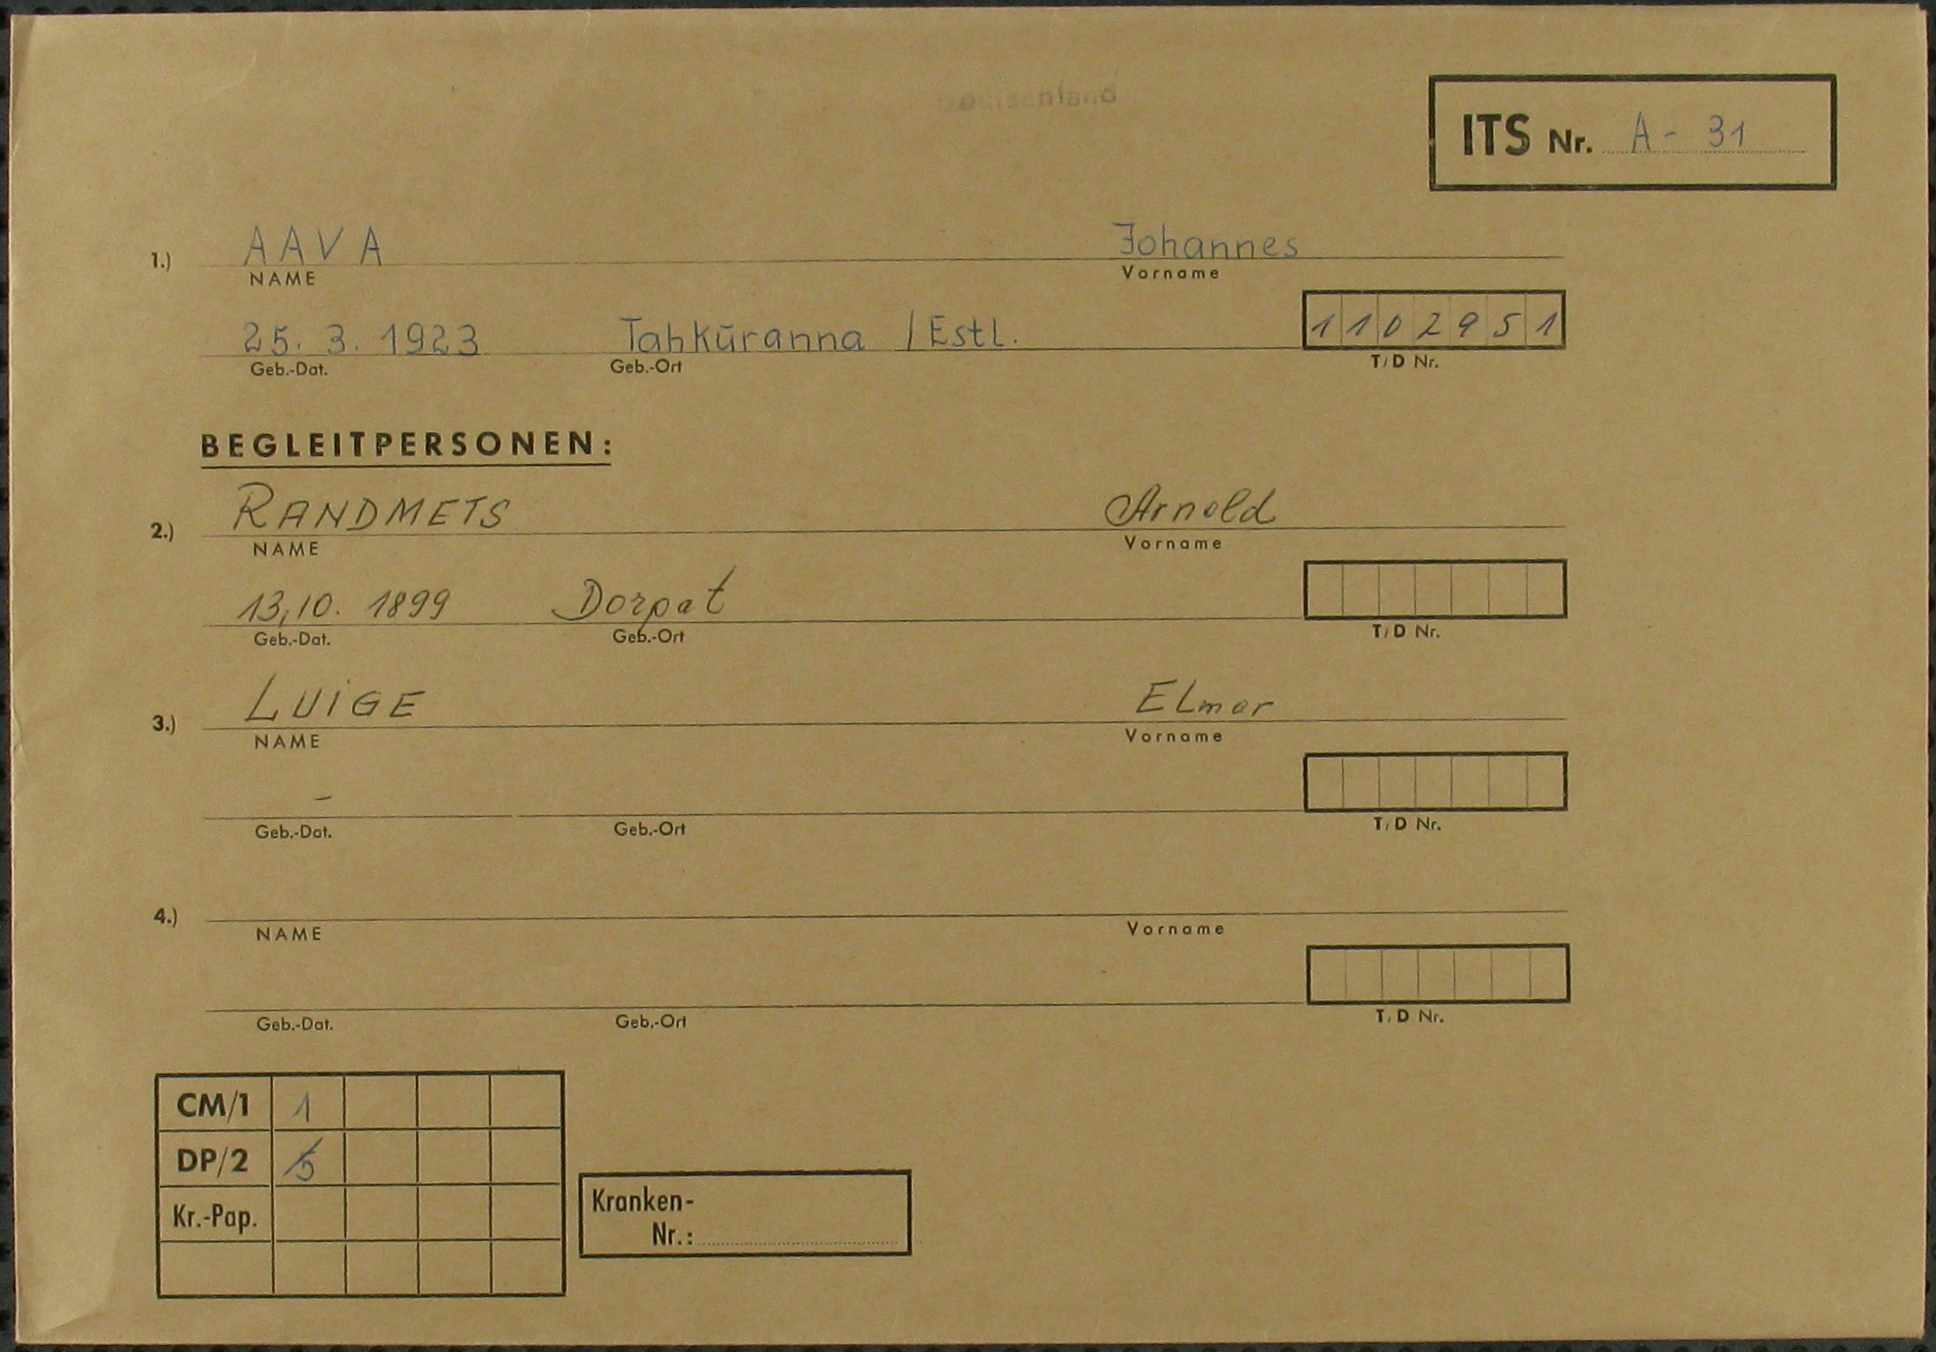 Deutschland
ITS Nr. A - 31
1.) AAVA Johannes
NAME Vorname
25. 3. 1923 Tahkūranna / Estl. 1102951
Geb.-Dat. Geb.-Ort T/D Nr.
BEGLEITPERSONEN:
2.) RANDMETS Arnold
NAME Vorname
13,10. 1899 Dorpat
Geb.-Dat. Geb.-Ort T/D Nr.
3.) LUiGE ELmar
NAME Vorname
–
Geb.-Dat. Geb.-Ort T/D Nr.
4.)
NAME Vorname
Geb.-Dat. Geb.-Ort T/D Nr.
CM/1 1
DP/2 5
Kr.-Pap.
Kranken-
Nr.: